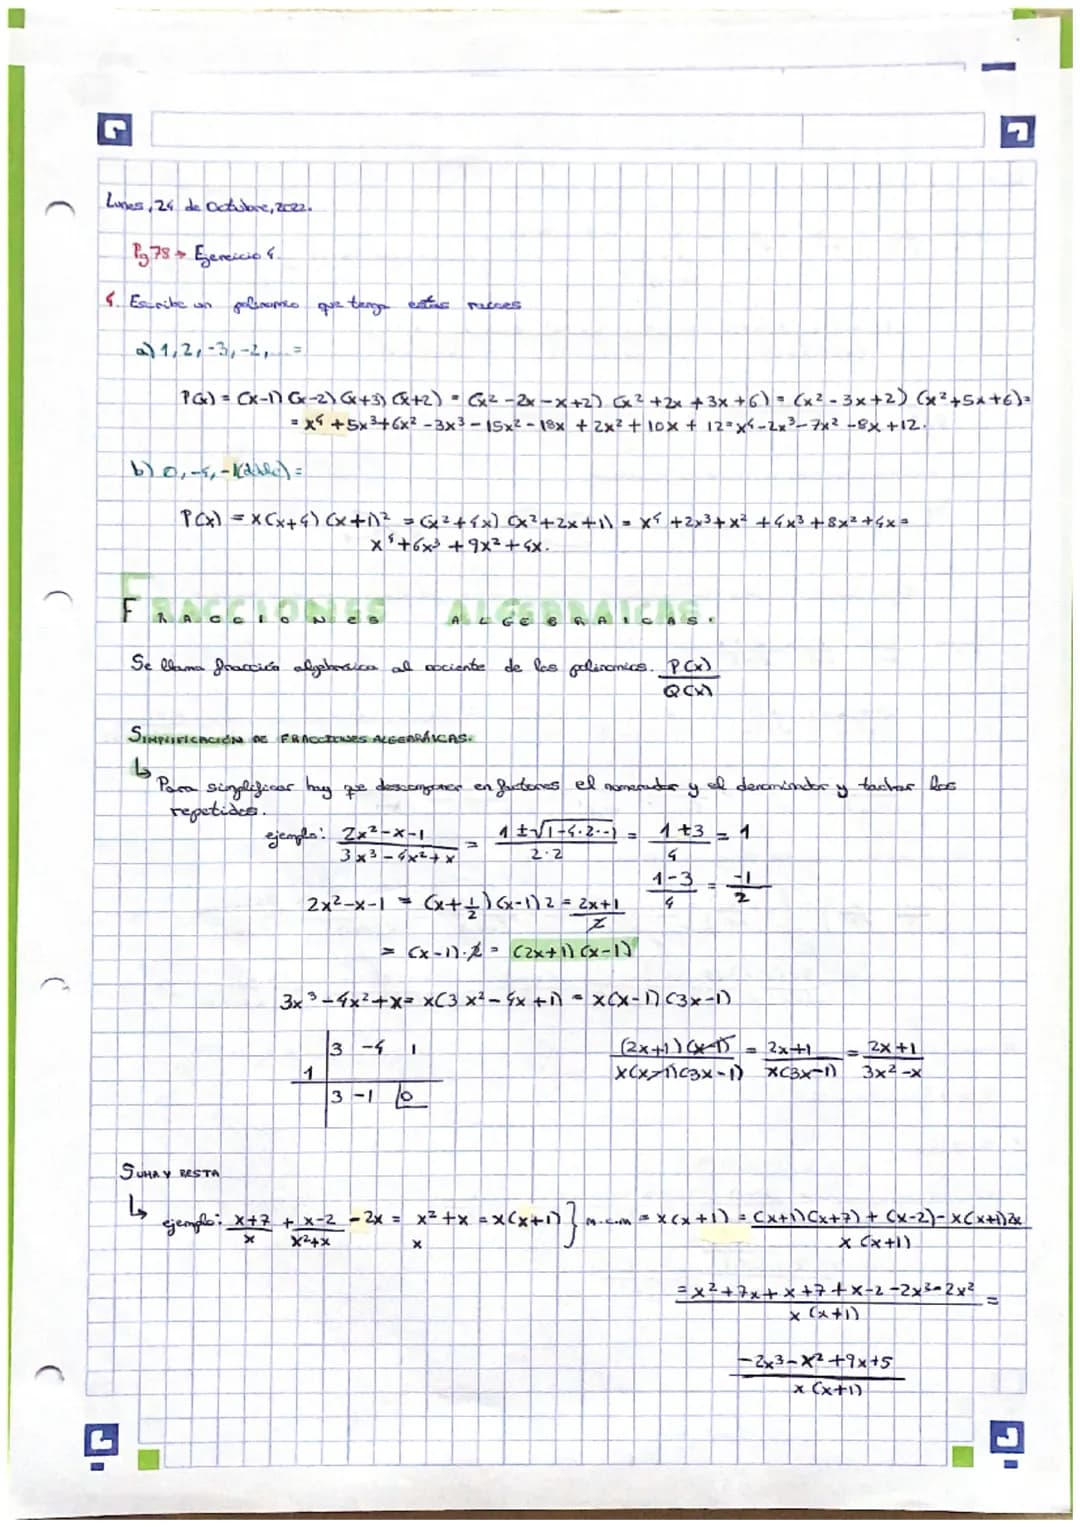 Lunes, 24 de Octubre, 2022.
Pg 78 → Ejercicio 4.
4. Escribe un polinomio que tenga estas raíces
a) 1, 2, -3, -2, ... =
P(x) = (x-1) (x-2) (x+3) (x+2) = (x² -2x -x +2) (x² +2x +3x +6) = (x² -3x +2) (x² +5x +6) =
= x⁴ +5x³ +6x² -3x³ -15x² -18x +2x² +10x + 12 = x⁴ -2x³ -7x² -8x +12.
b) 0, -4, -1(doble) =
P(x) = x(x+4) (x+1)² = (x² +4x) (x² +2x +1) = x⁴ +2x³ +x² +4x³ +8x² +4x =
x⁴ +6x³ +9x² +4x.
FRACCIONES ALGEBRAICAS.
Se llama fracción algebraica al cociente de los polinomios. P(x)
Q(x)
SIMPLIFICACIÓN DE FRACCIONES ALGEBRÁICAS.
↳ Para simplificar hay que descomponer en factores el nomerador y el denominador y tachar los
repetidos.
ejemplo: 2x² -x -1 = 1 ±√1-4·2·-1 = 1 +3 = 1
3x³ -4x² + x 2·2 4
1-3 = -1
4 2
2x² -x -1 = (x+ 1/2) (x-1) 2 = 2x+1
2
= (x-1)·2 = (2x+1) (x-1)
3x³ -4x² +x = x(3x² -4x +1) = x(x-1) (3x-1)
3 -4 1
1
3 -1 0
(2x+1) (x-1) = 2x+1 = 2x+1
x(x-1)(3x-1) x(3x-1) 3x² -x
SUMA Y RESTA
↳ ejemplo: x+7 + x-2 -2x = x² +x = x(x+1) } m.c.m = x(x+1) = (x+1)(x+7) + (x-2) - x(x+1)2x
x x²+x x x (x+1)
= x² +7x + x +7 + x -2 -2x³ -2x² =
x (x+1)
-2x³ -x² +9x +5
x (x+1)